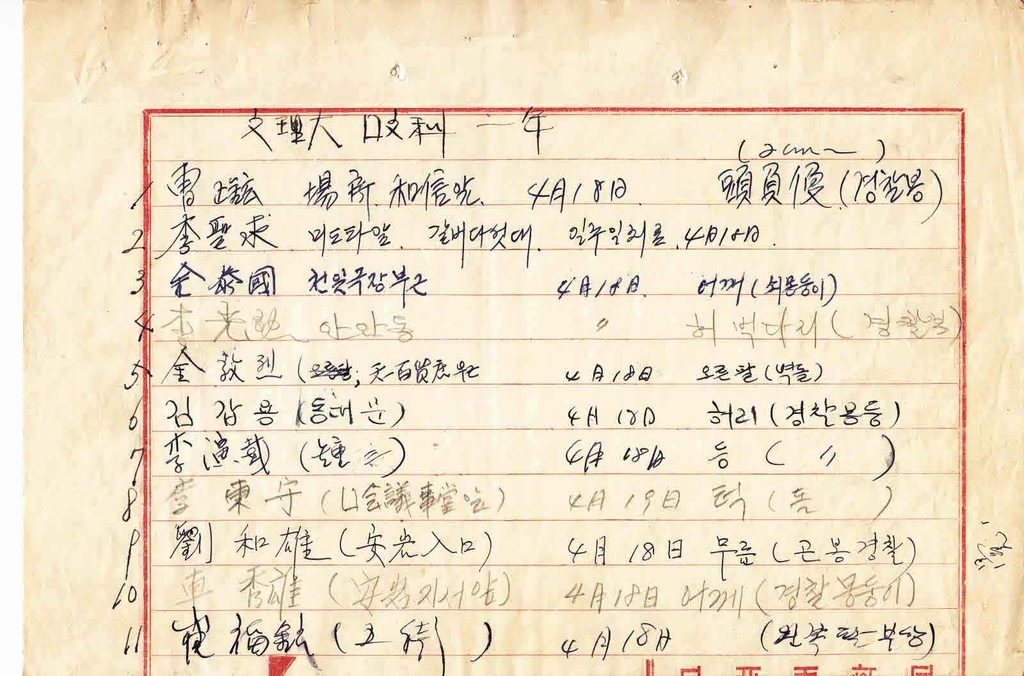 文理大 政科 一年
(2cm~)
1 曺 鉉 場所 和信앞. 4月18日. 頭負傷 (경찰봉)
2 李聖求 미도파앞. 갈비다섯대. 일주일치료. 4月18日.
3 金泰國 천일극장부근 4月18日. 어깨 (쇠몽둥이)
4 李光 안암동 〃 허벅다리 (경찰봉)
5 金敦烈 ( ; 天一百貨店부근 4月18日 오른팔 (벽돌)
6 김갑용 (동대문) 4月18日 허리 (경찰몽둥)
7 李演戴 (鍾 ) 4月18日 등 (〃)
8 李東守 (口会議事堂앞) 4月19日 턱 (돌)
9 劉和雄 (安岩入口) 4月18日 무릎 (곤봉경찰)
10 車秀雄 (安岩지서앞) 4月18日 어깨 (경찰몽둥이)
11 崔福鉉 (五街) 4月18日 (왼쪽팔부상)